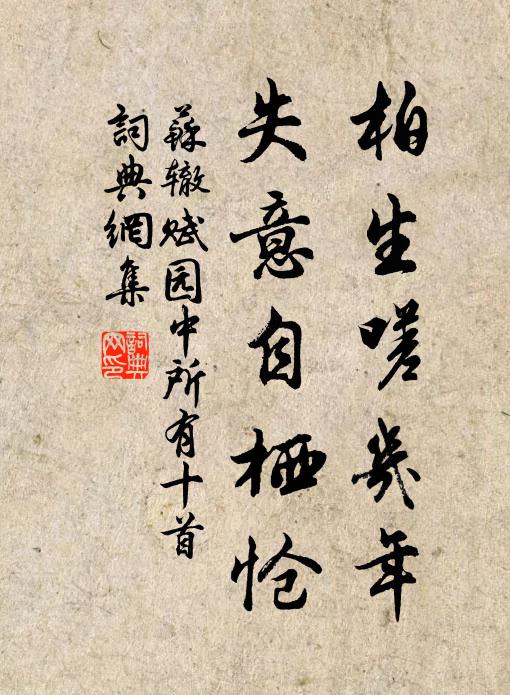 柏生嗟幾年
失意自栖怆
蘇辙赋园中所有十首
詞典網集
詞典网印